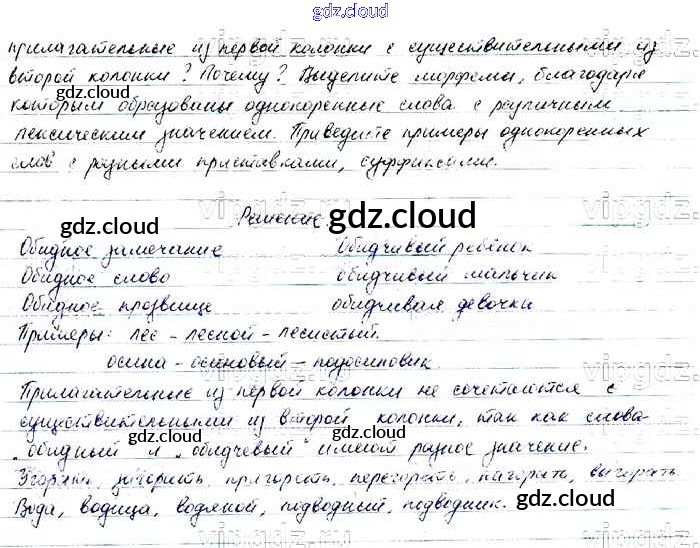 gdz.cloud
прилагательные из первой колонки с существительными из
второй колонки? Почему? Выделите морфемы, благодаря
которым образованы однокоренные слова с различным
лексическим значением. Приведите примеры однокоренных
слов с разными приставками, суффиксами.
gdz.cloud
Решение gdz.cloud
Обидное замечание Обидчивый ребёнок
Обидное слово обидчивый мальчик
Обидное прозвище обидчивая девочки
Примеры: лес - лесной - лесистый.
осина - осиновый - подосиновик.
gdz.cloud
Прилагательные из первой колонки не сочетаются с
существительными из второй колонки, так как слова
„обидный" и „обидчевый" имеют разное значение.
Угорать, загорать, пригорать, перегорать, нагорать, выгорать.
Вода, водица, водяной, подводный, подводник.
gdz.cloud